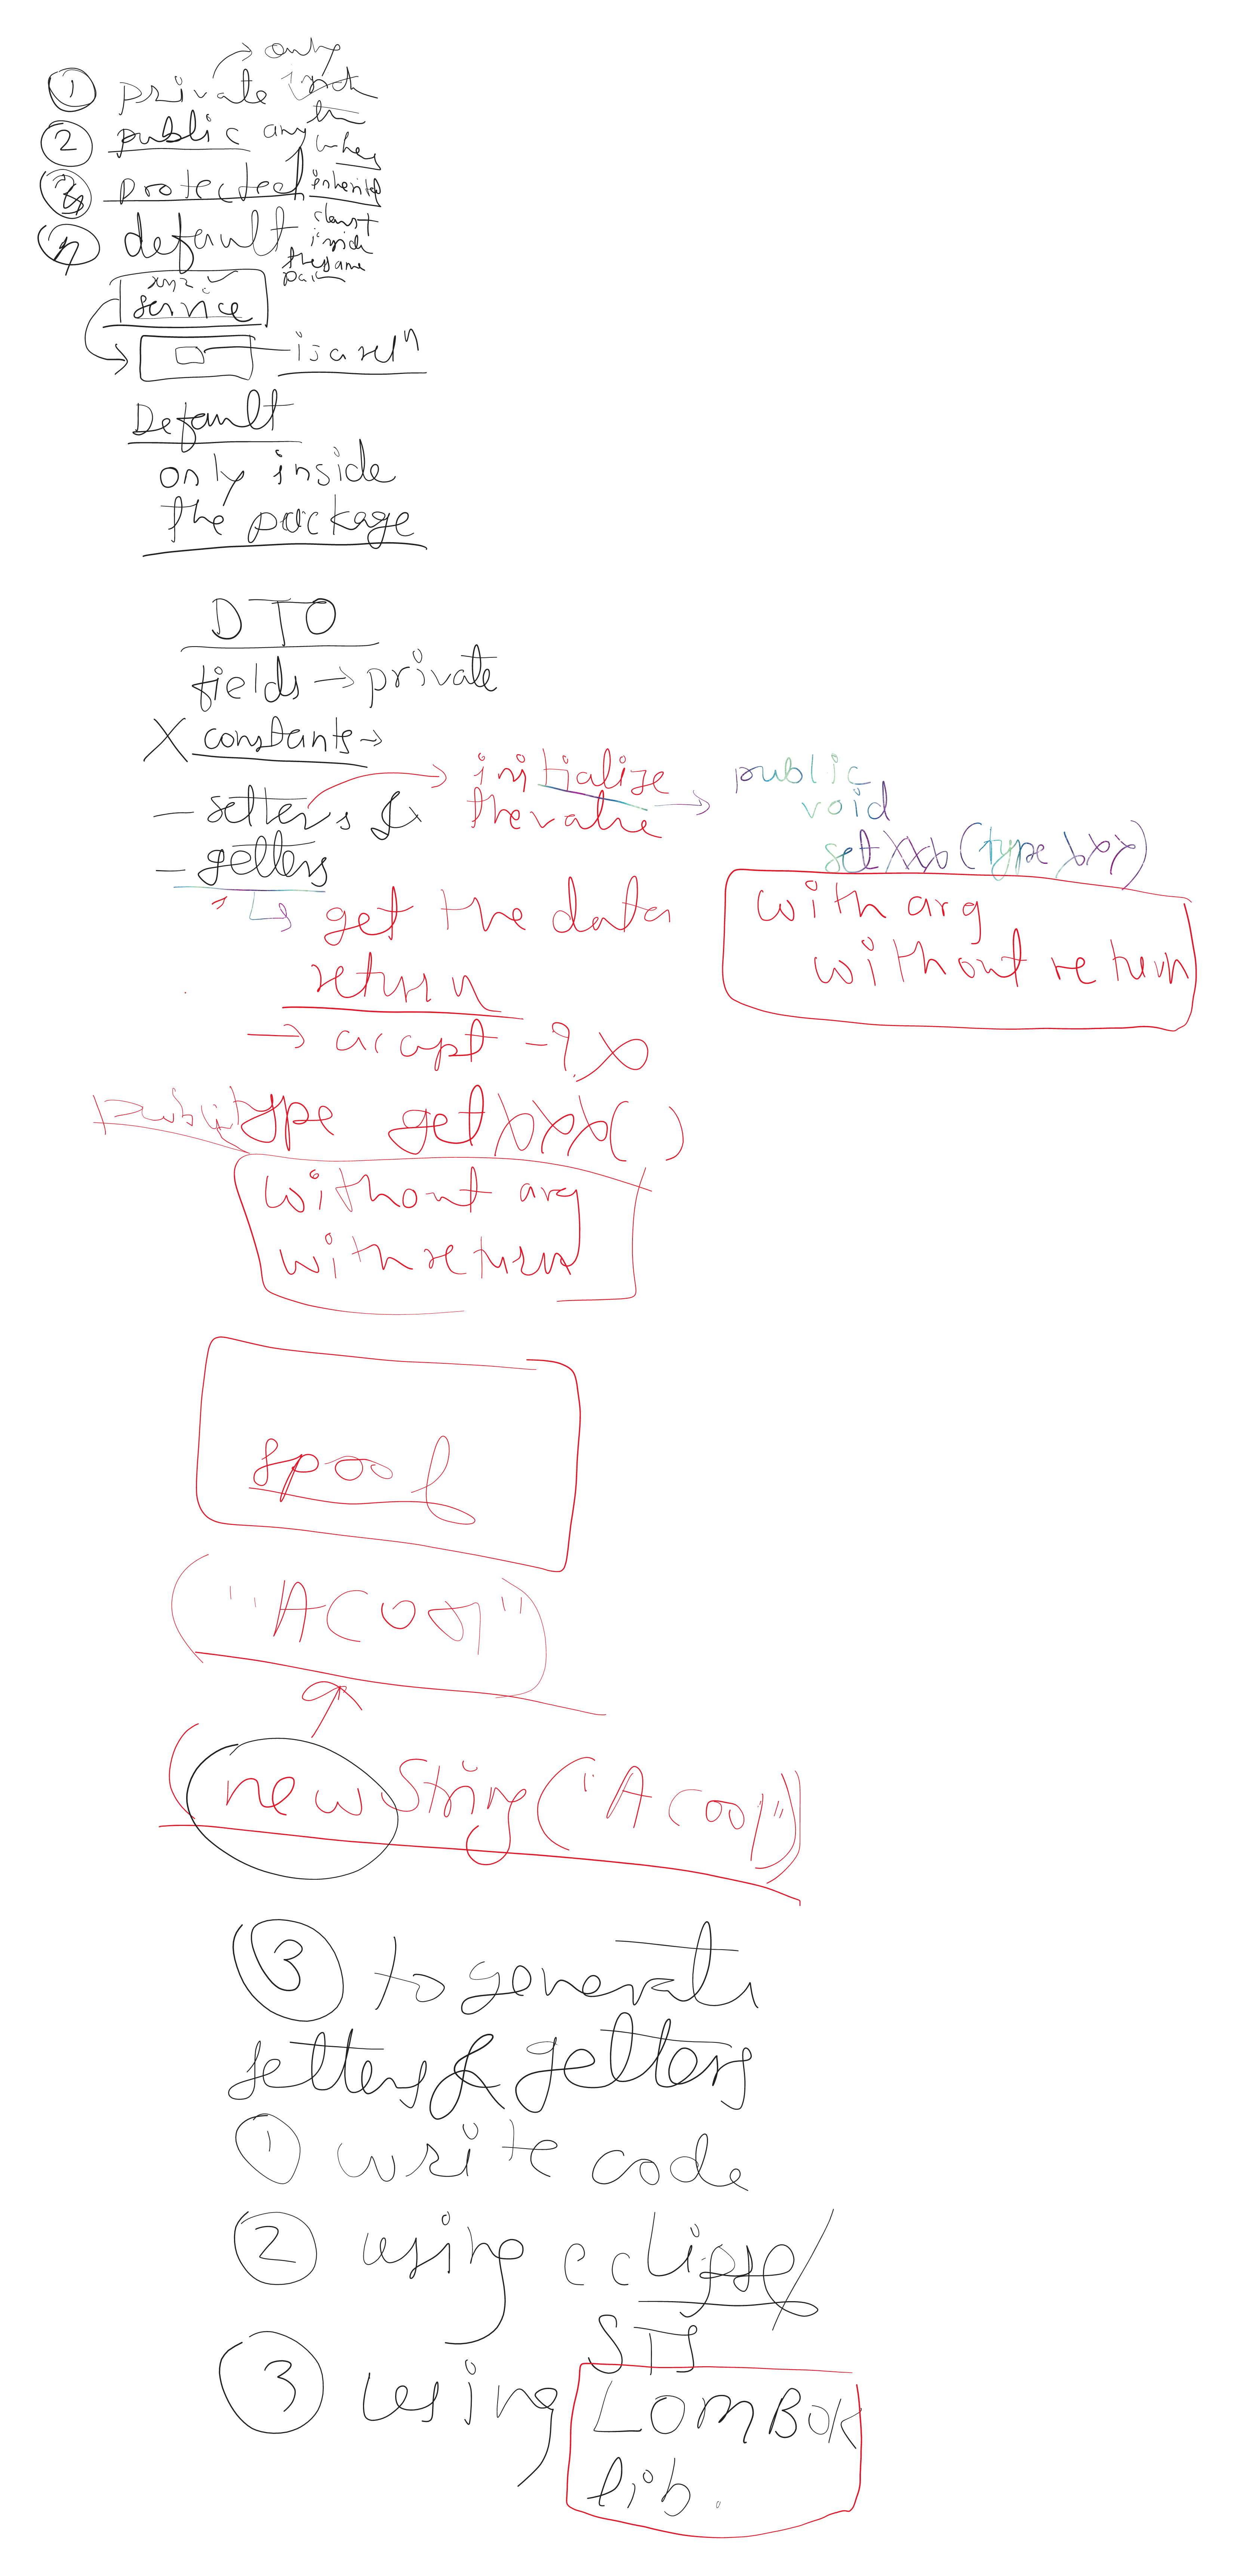 ① private → only
② public any where
③ protected inherited
④ default
class &
inside
the same
xyz
service
is a relⁿ
Default
only inside
the package
DTO
fields → private
X constants →
- setters &
- getters
initialize
the value
public
void
setXxx(type xxx)
with arg
without return
get the data
return
→ accept - ? X
public type getxxx( )
without arg
with return
spool
("AC001")
(new String("AC001"))
③ to generate
setters & getters
① write code
② using eclipse/
STS
③ using LOMBOK
lib.